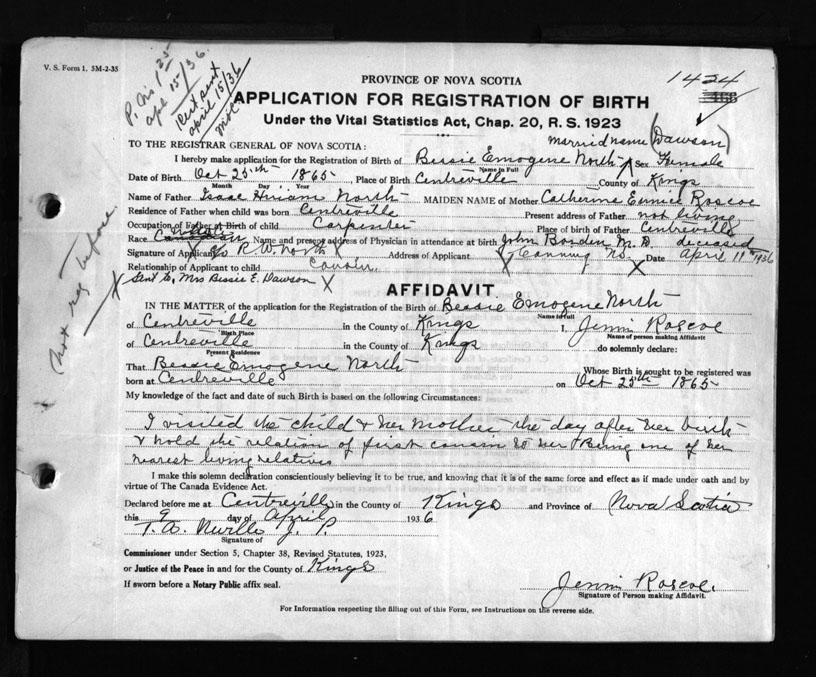 V. S. Form 1, 5M-2-35
April 15/36
PROVINCE OF NOVA SCOTIA
1424
APPLICATION FOR REGISTRATION OF BIRTH
Under the Vital Statistics Act, Chap. 20, R. S. 1923
married name (Dawson)
TO THE REGISTRAR GENERAL OF NOVA SCOTIA:
I hereby make application for the Registration of Birth of Bessie Emogene North Sex Female
Name in Full
Date of Birth Oct 25th 1865 Place of Birth Centreville County of Kings
Month Day Year
Name of Father Isaac Hiriam North MAIDEN NAME of Mother Catherine Eunice Roscoe
Residence of Father when child was born Centreville Present address of Father not living
Occupation of Father at Birth of child Carpenter Place of birth of Father Centreville
Race Name and present address of Physician in attendance at birth John Borden M. D. deceased
Signature of Applicant X R. W. North X Address of Applicant Canning N.S. Date April 11th 1936
Relationship of Applicant to child Cousin
X Sent to Mrs Bessie E. Dawson X
not reg before
AFFIDAVIT
IN THE MATTER of the application for the Registration of the Birth of Bessie Emogene North
Name in Full
of Centreville in the County of Kings I, Jennie Roscoe
Birth Place Name of person making Affidavit
of Centreville in the County of Kings do solemnly declare:
Present Residence
That Bessie Emogene North Whose Birth is sought to be registered was
born at Centreville on Oct 25th 1865
My knowledge of the fact and date of such Birth is based on the following Circumstances:
I visited the child & her mother the day after her birth
& hold the relation of first cousin to her & Being one of her
nearest living relatives
I make this solemn declaration conscientiously believing it to be true, and knowing that it is of the same force and effect as if made under oath and by
virtue of The Canada Evidence Act.
Declared before me at Centreville in the County of Kings and Province of Nova Scotia
this 9 day of April 1936
T. A. Neville J. P.
Signature of
Commissioner under Section 5, Chapter 38, Revised Statutes, 1923,
or Justice of the Peace in and for the County of Kings
If sworn before a Notary Public affix seal.
Jennie Roscoe.
Signature of Person making Affidavit.
For Information respecting the filling out of this Form, see Instructions on the reverse side.